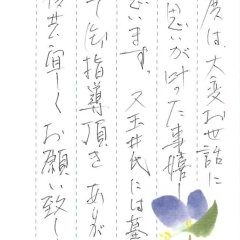 度は、大変お世話に
思いが叶った事嬉し
います。又玉井氏には墓
て御指導頂き ありが
共宜しくお願い致し